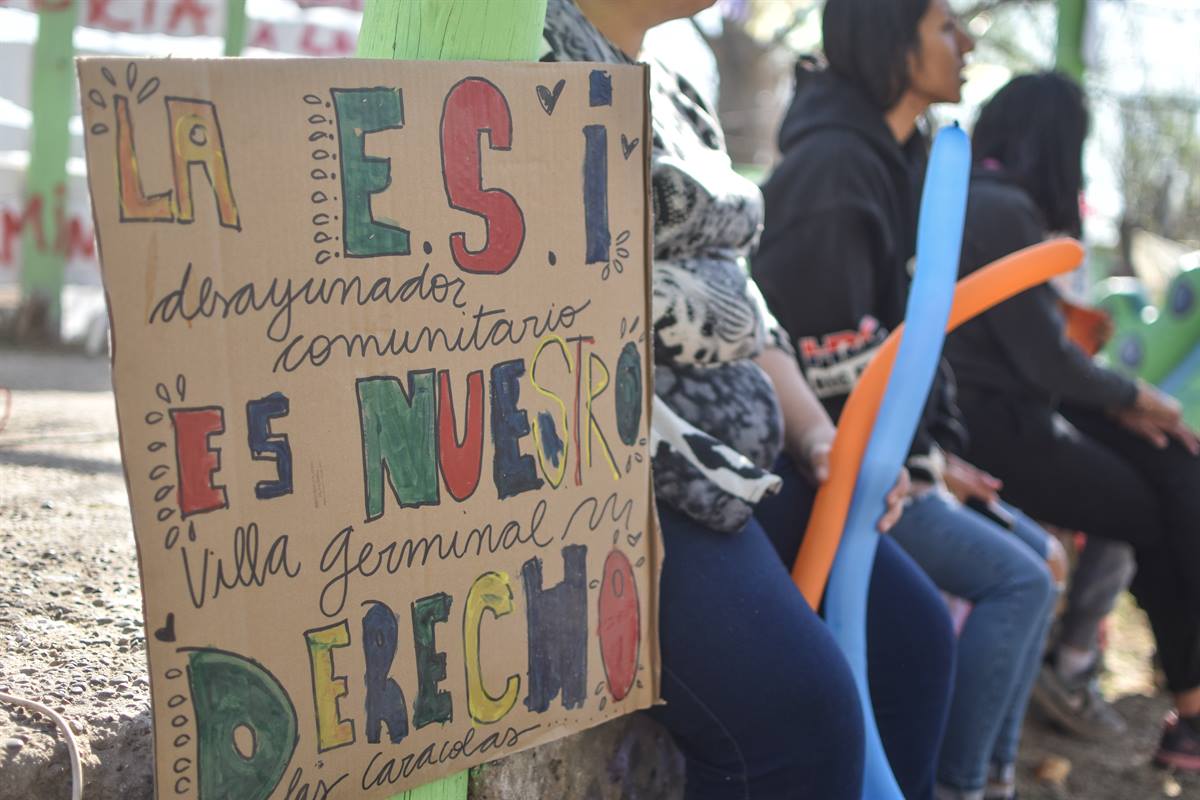 LA E.S.i
desayunador
comunitario
ES NUESTRO
Villa germinal
DERECHO
las caracolas